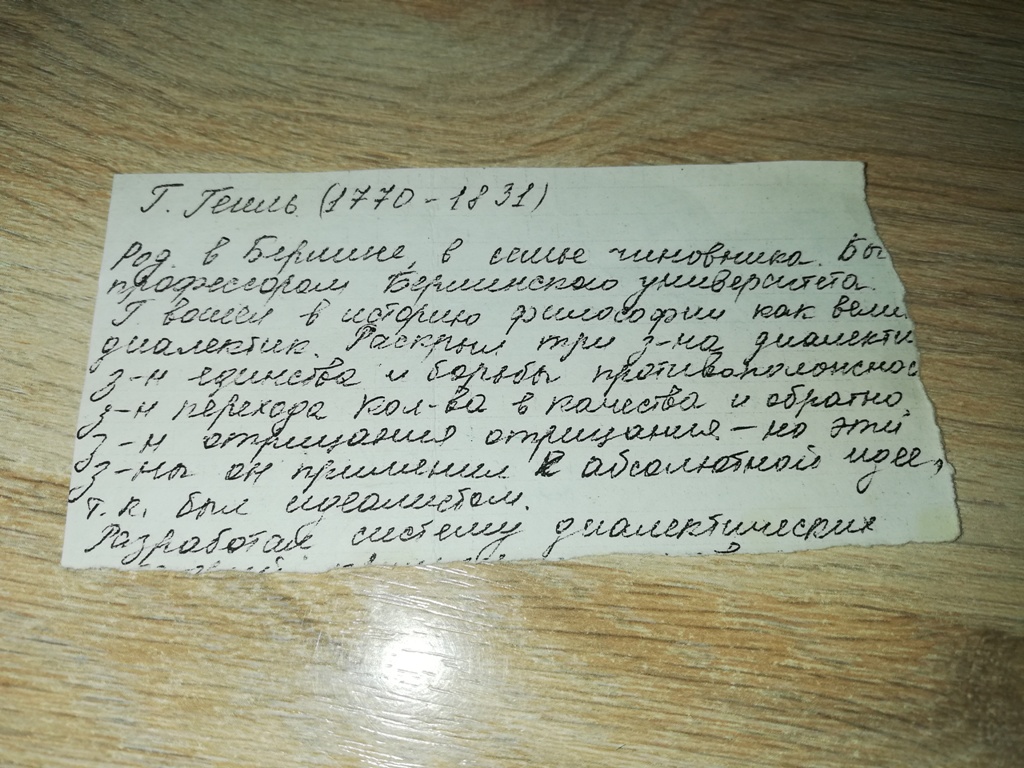 Г. Гегель (1770-1831)
Род. в Берлине, в семье чиновника. Бы
профессором Берлинского университета.
Г вошел в историю философии как вели
диалектик. Раскрыл три з-на диалекти
з-н единства и борьбы противоположнос
з-н перехода кол-ва в качества и обратно,
з-н отрицания отрицания - но эти
з-ны он применил к абсолютной идее,
т.к. был идеалистом.
Разработал систему диалектических